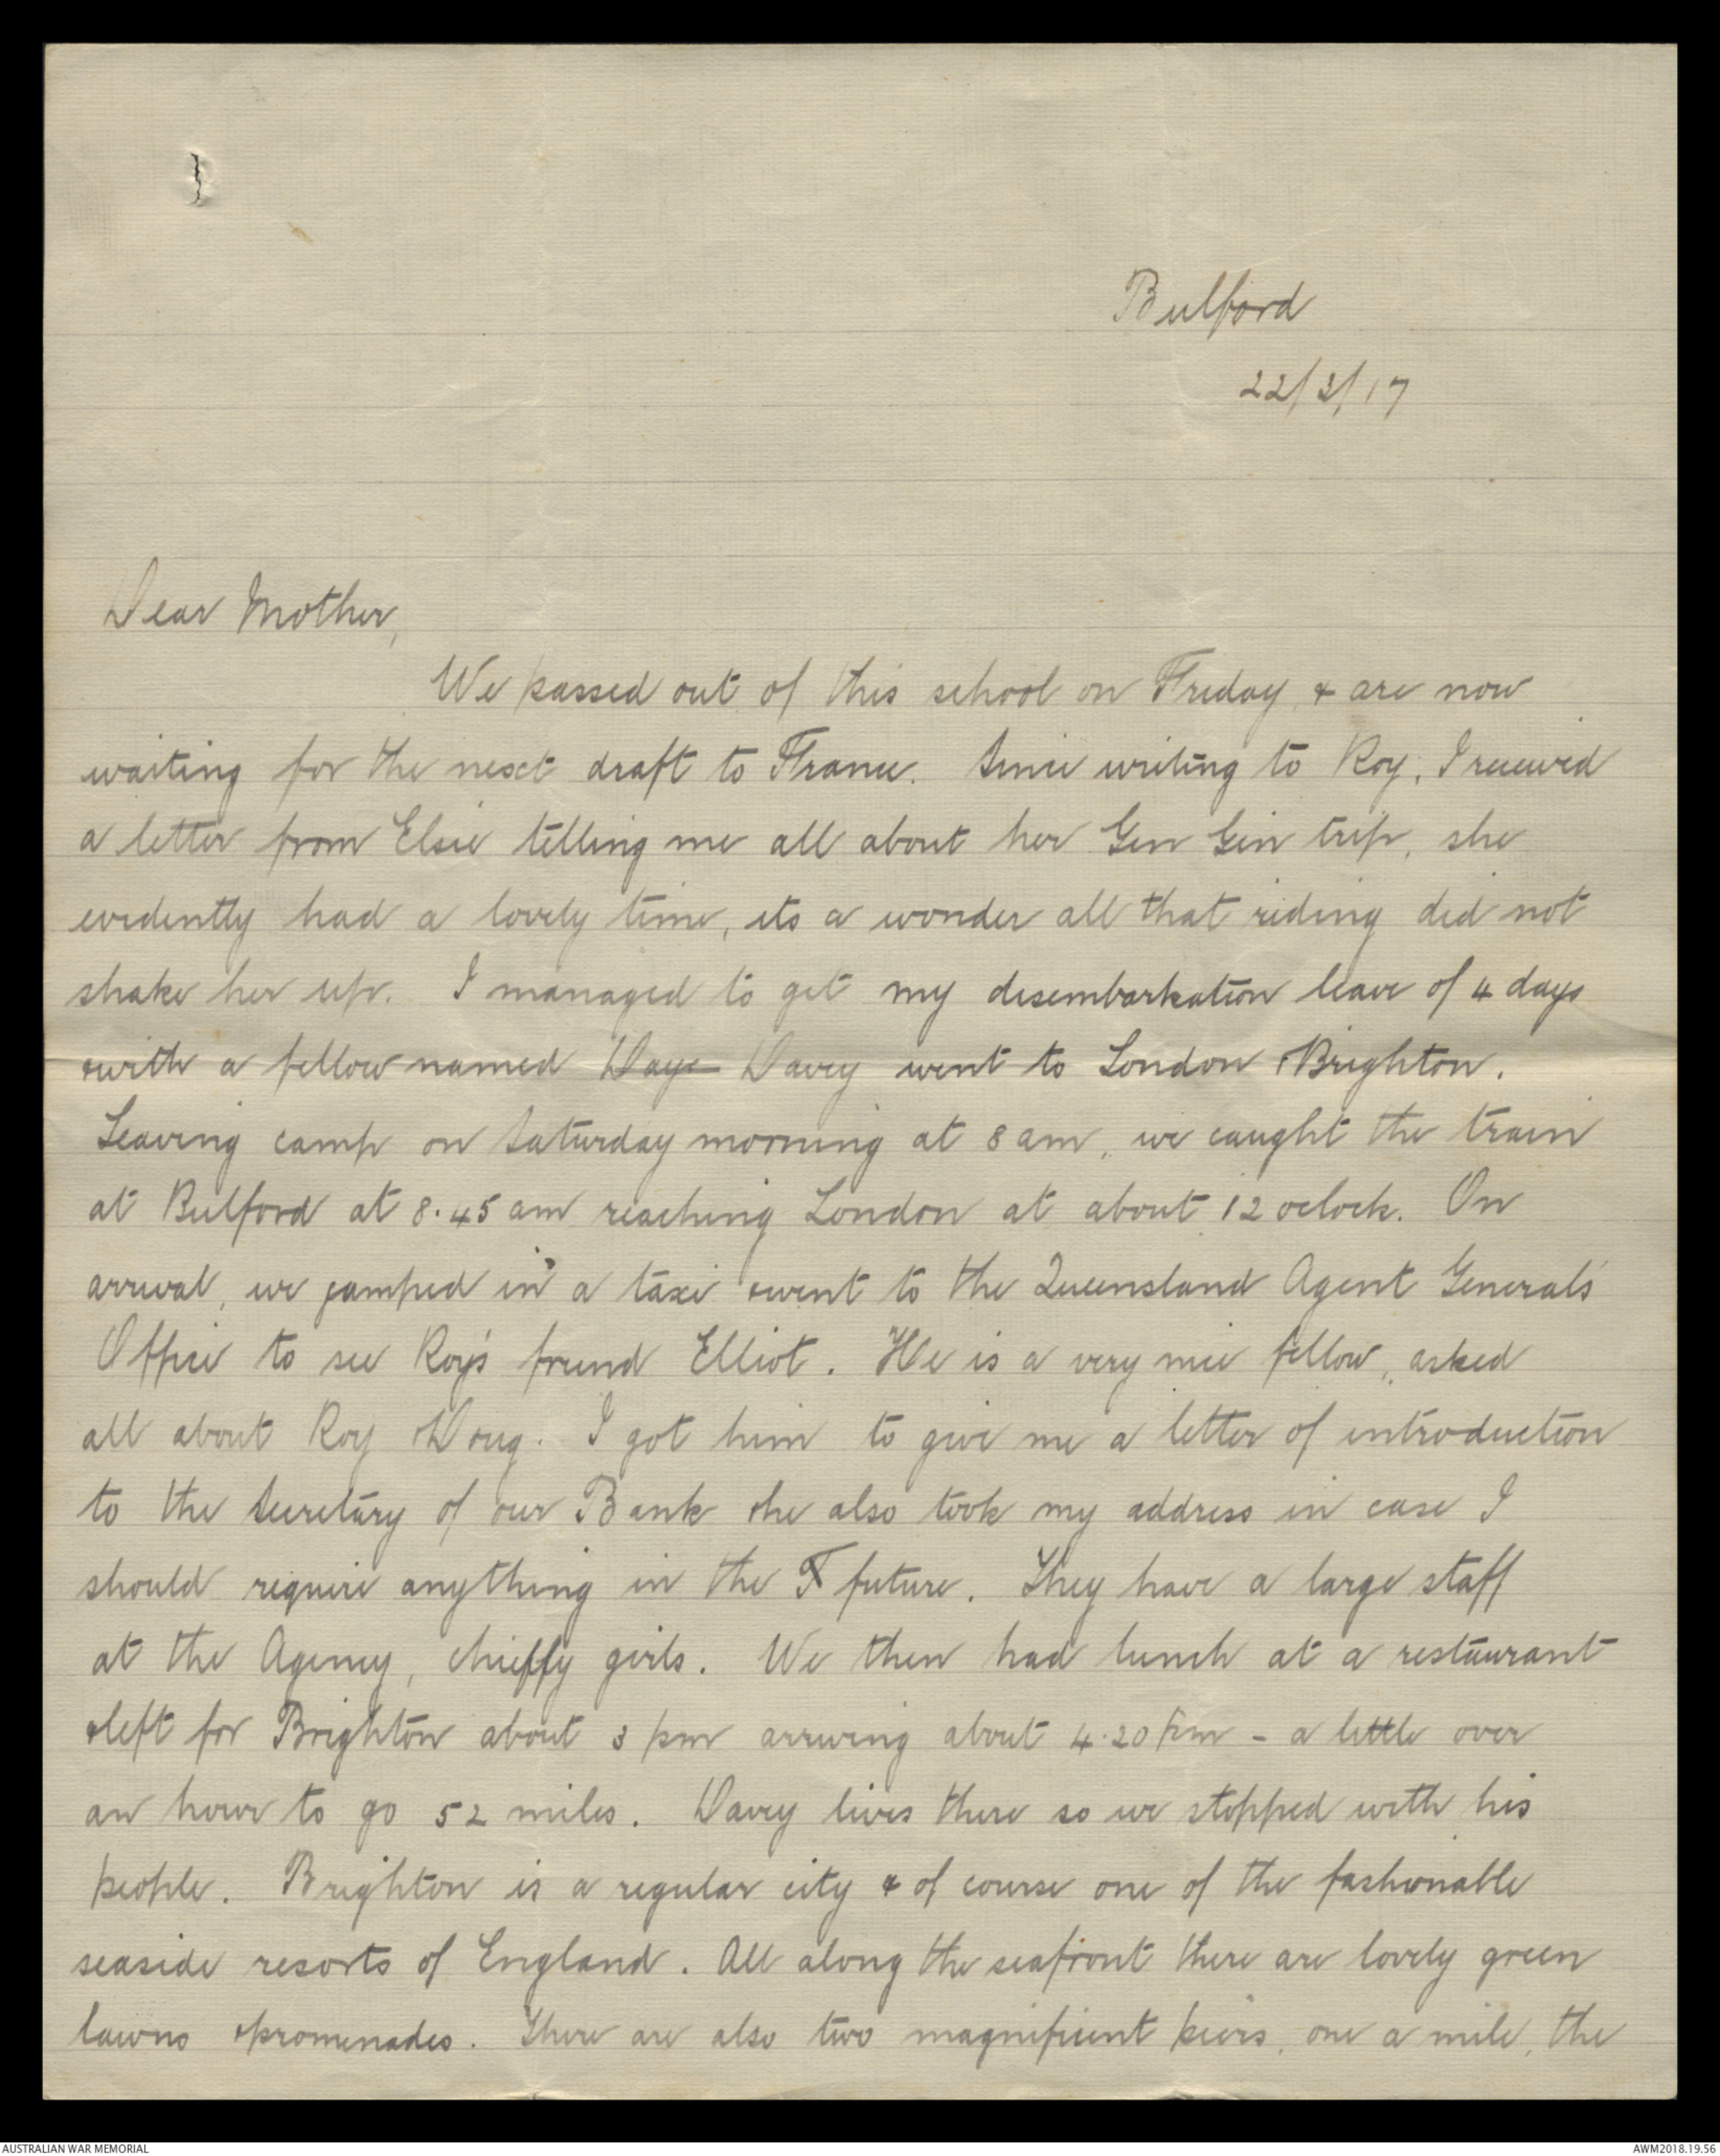 Bulford
22/3/17
Dear Mother,
We passed out of this school on Friday, & are now
waiting for the next draft to France. Since writing to Roy, I received
a letter from Elsie telling me all about her Gin Gin trip, she
evidently had a lovely time, its a wonder all that riding did not
shake her up. I managed to get my disembarkation leave of 4 days
& with a fellow named Daye Davey went to London & Brighton.
Leaving camp on Saturday morning at 8 am, we caught the train
at Bulford at 8.45 am reaching London at about 12 oclock. On
arrival, we jamped in a taxi & went to the Queensland Agent Generals'
Office to see Roy's friend Elliot. He is a very nice fellow, asked
all about Roy & Doug. I got him to give me a letter of introduction
to the Secretary of our Bank & he also took my address in case I
should require anything in the F future. They have a large staff
at the Agency, chieffy girls. We then had lunch at a restaurant
& left for Brighton about 3 pm arriving about 4.20 pm - a little over
an hour to go 52 miles. Davey lives there so we stopped with his
people. Brighton is a regular city & of course one of the fashionable
seaside resorts of England. All along the seafront there are lovely green
lawns & promenades. There are also two magnificent piers, one a mile, the
AUSTRALIAN WAR MEMORIAL
AWM2018.19.56